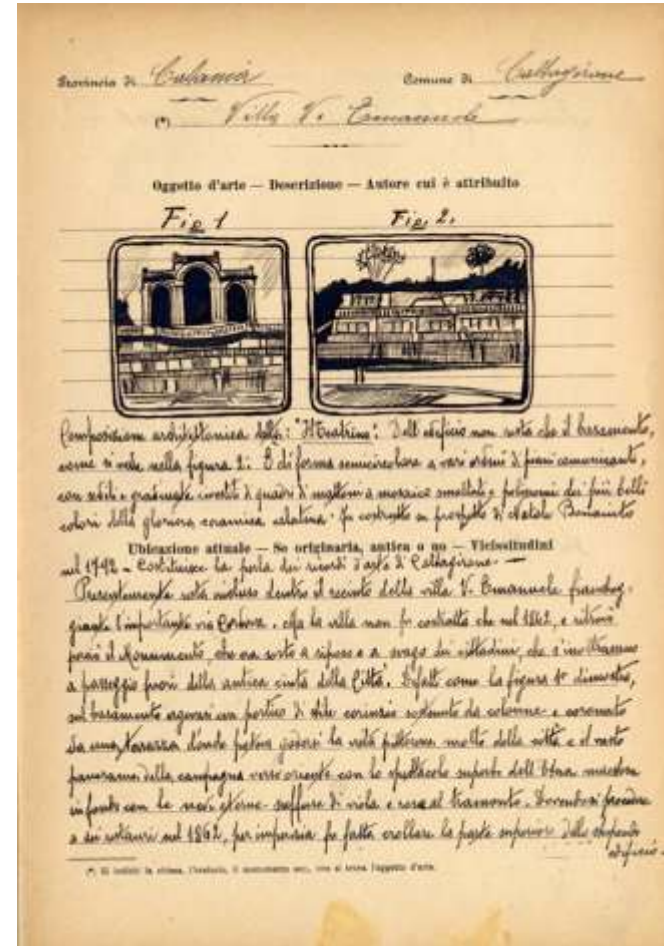 Provincia di Catania Comune di Caltagirone
(*) Villa V. Emanuele
Oggetto d'arte — Descrizione — Autore cui è attribuito
Fig 1 Fig. 2.
Composizione architettonica della: "Il Teatrino". Dell'edificio non resta che il basamento,
come si vede nella figura 2: È di forma semicircolare a vari ordini di piani comunicanti,
con sedili e gradinate rivestiti di quadri di mattoni a mosaico smaltati e policromi dei più belli
colori della gloriosa ceramica calatina. Fu costrutto su prospetto di Natale Bonaiuto
Ubicazione attuale — Se originaria, antica o no — Vicissitudini
nel 1792 - Costituisce la perla dei ricordi d'arte di Caltagirone. —
Presentemente resta incluso dentro il recinto della villa V. Emanuele fiancheg-
giante l'importante via . Ma la villa non fu costrutta che nel 1862, e
poi il Monumento, che era sorto a riposo e a svago dei cittadini, che s'inoltravano
a passeggio fuori della antica cinta della Città. Difatti come la figura 1a dimostra,
sul basamento ergevasi un portico di stile corinzio sostenuto da colonne e coronato
da una terrazza d'onde poteva godersi la vista pittoresca molto della città e il vasto
panorama della campagna verso oriente con lo spettacolo superbo dell'Etna maestoso
in fondo con le nevi eterne soffuse di viola e rosa al tramonto. Dovendosi procedere
a dei restauri nel 1862, per imperizia fu fatta crollare la parte superiore dello stupendo
edificio.
(*) Si indichi la chiesa, l'oratorio, il monumento ecc. ove si trova l'oggetto d'arte.